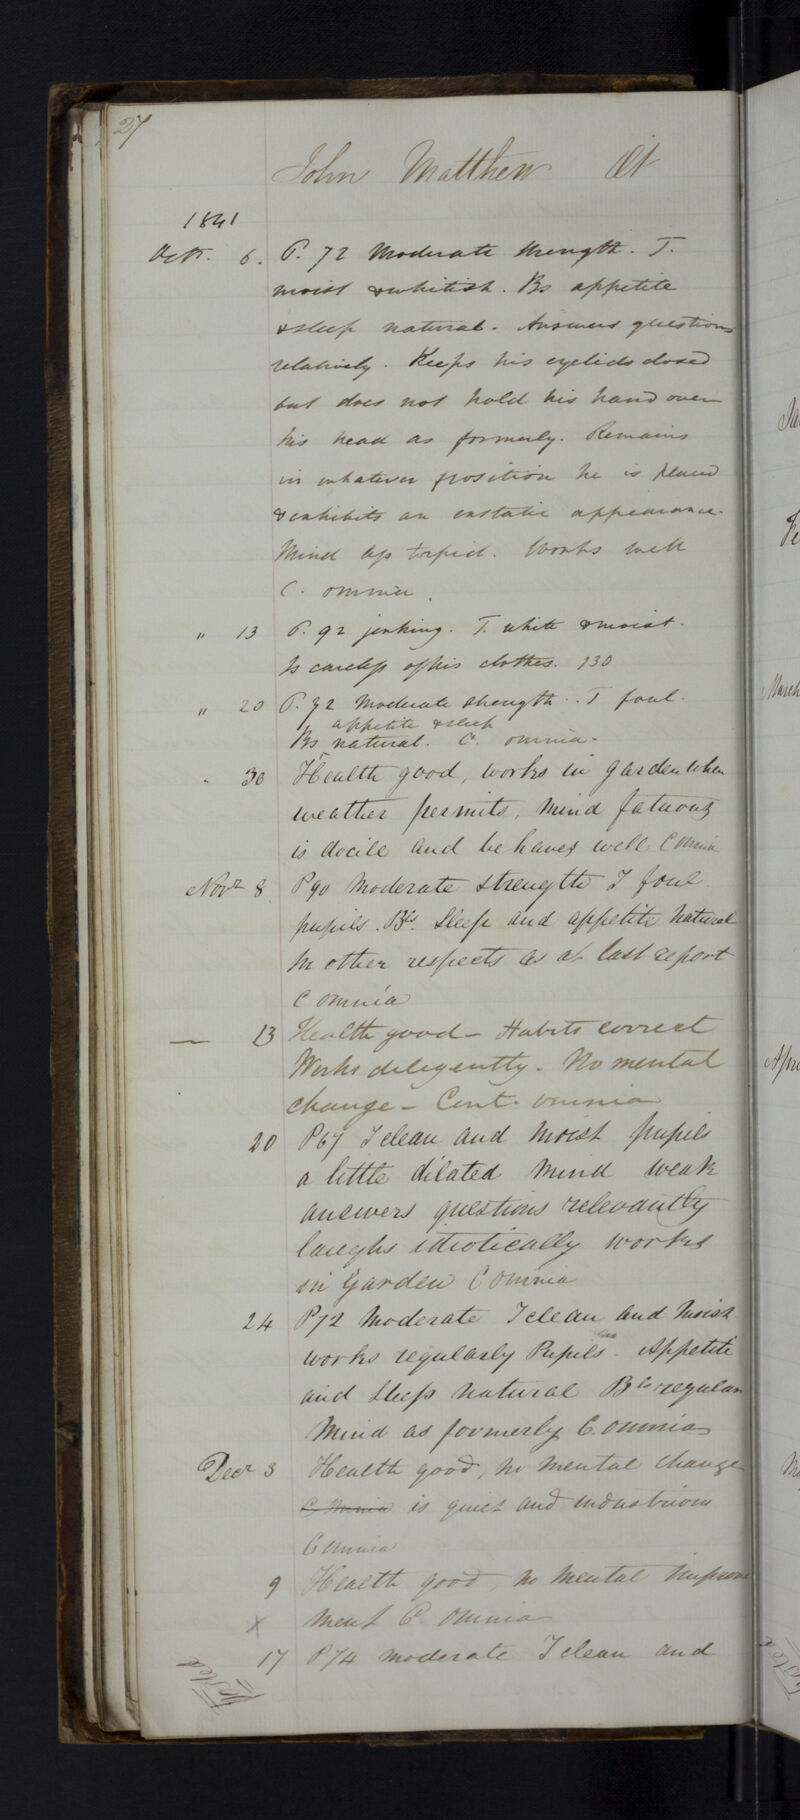 27
John Matthew Æt
1841
Octr. 6. P. 72 Moderate strength. T.
moist & whitish. Bs appetite
& sleep natural. Answers questions
relatively. Keeps his eyelids closed
but does not hold his hand over
his head as formerly. Remains
in whatever position he is placed
& exhibits an exstatic appearance.
Mind less torpid. Works well
C. omnia.
" 13 P. 92 jerking. T. white & moist.
Is careless of his clothes. 130
" 20 P. 72 Moderate strength. T foul.
appetite & sleep
Bs natural. C. omnia.
" 30 Health good, works in garden when
weather permits, mind fatuous
is docile and behaves well C omnia
Novr 8 P 90 Moderate strength T foul
pupils. Bls. Sleep and appetite natural
In other respects as at last report
C omnia
— 13 Health good – Habits correct
Works diligently – No mental
change – Cont. omnia
20 P 67 T clean and moist pupils
a little dilated mind weak
answers questions relevantly
laughs idiotically works
in Garden C omnia
24 P 72 Moderate T clean and moist
works regularly Pupils. Appetite
and Sleep natural Bls regular
Mind as formerly C. omnia
Decr 3 Health good, no mental change
C Omnia is quiet and industrious
C omnia
9 Health good, no mental improve
x ment C. omnia
17 P 74 moderate T clean and
March